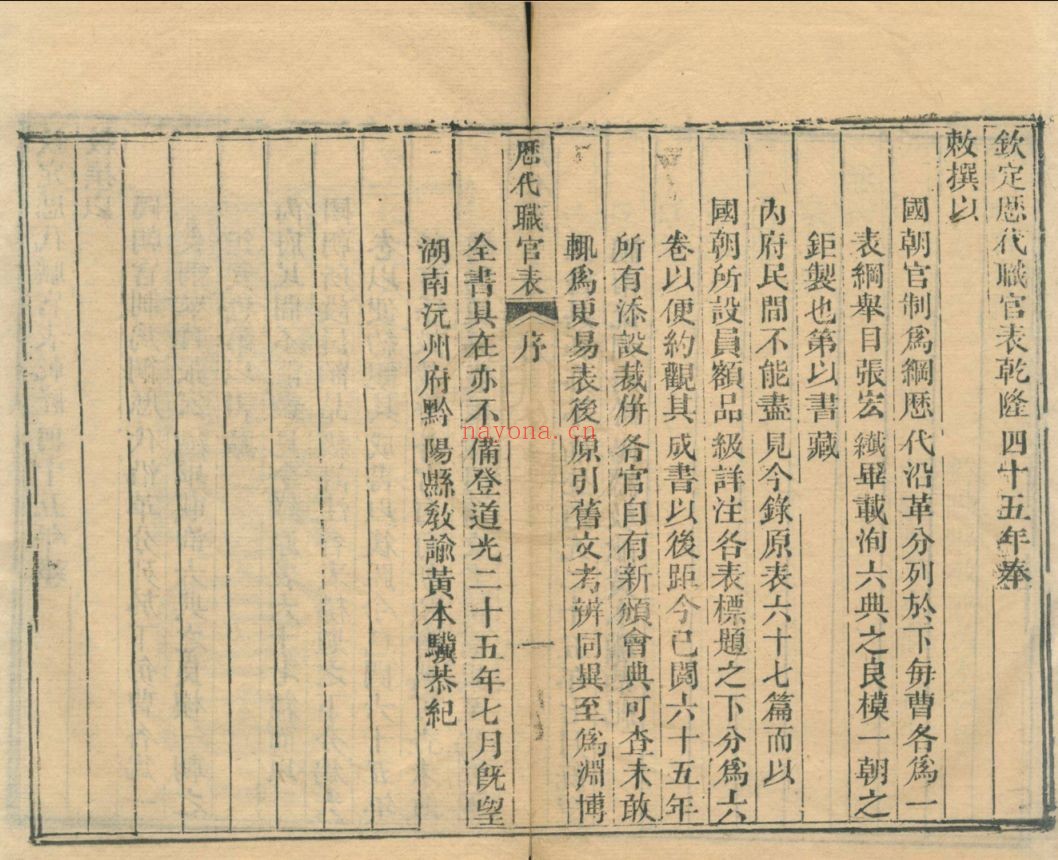 欽定歷代職官表乾隆四十五年奉
敕撰以
國朝官制爲綱歷代沿革分列於下每曹各爲一
表綱舉目張宏纖畢載洵六典之良模一朝之
鉅製也第以書藏
內府民間不能盡見今錄原表六十七篇而以
國朝所設員額品級詳注各表標題之下分爲六
卷以便約觀其成書以後距今已閱六十五年
所有添設裁併各官自有新頒會典可查未敢
輒爲更易表後原引舊文考辨同異至爲淵博
歷代職官表 序 一
全書具在亦不備登道光二十五年七月既望
湖南沅州府黔陽縣敎諭黃本驥恭紀
nayona.cn